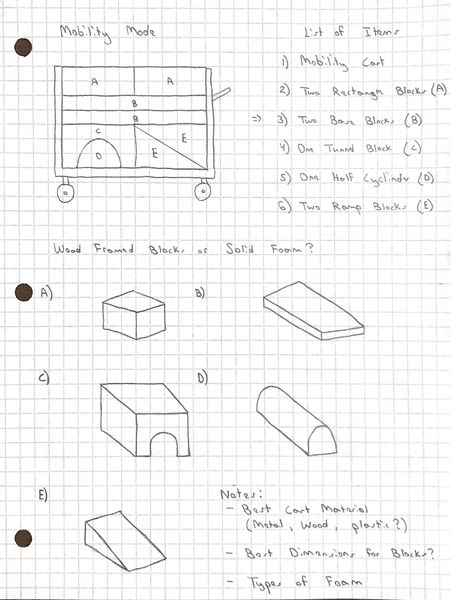 Mobility Mode
List of Items
1) Mobility Cart
2) Two Rectangle Blocks (A)
=> 3) Two Base Blocks (B)
4) One Tunnel Block (C)
5) One Half Cylinder (D)
6) Two Ramp Blocks (E)
A A
B
B
C
D
E
E
Wood Framed Blocks or Solid Foam?
A) B)
C) D)
E)
Notes:
- Best Cart Material
(Metal, Wood, plastic?)
- Best Dimensions for Blocks?
- Types of Foam